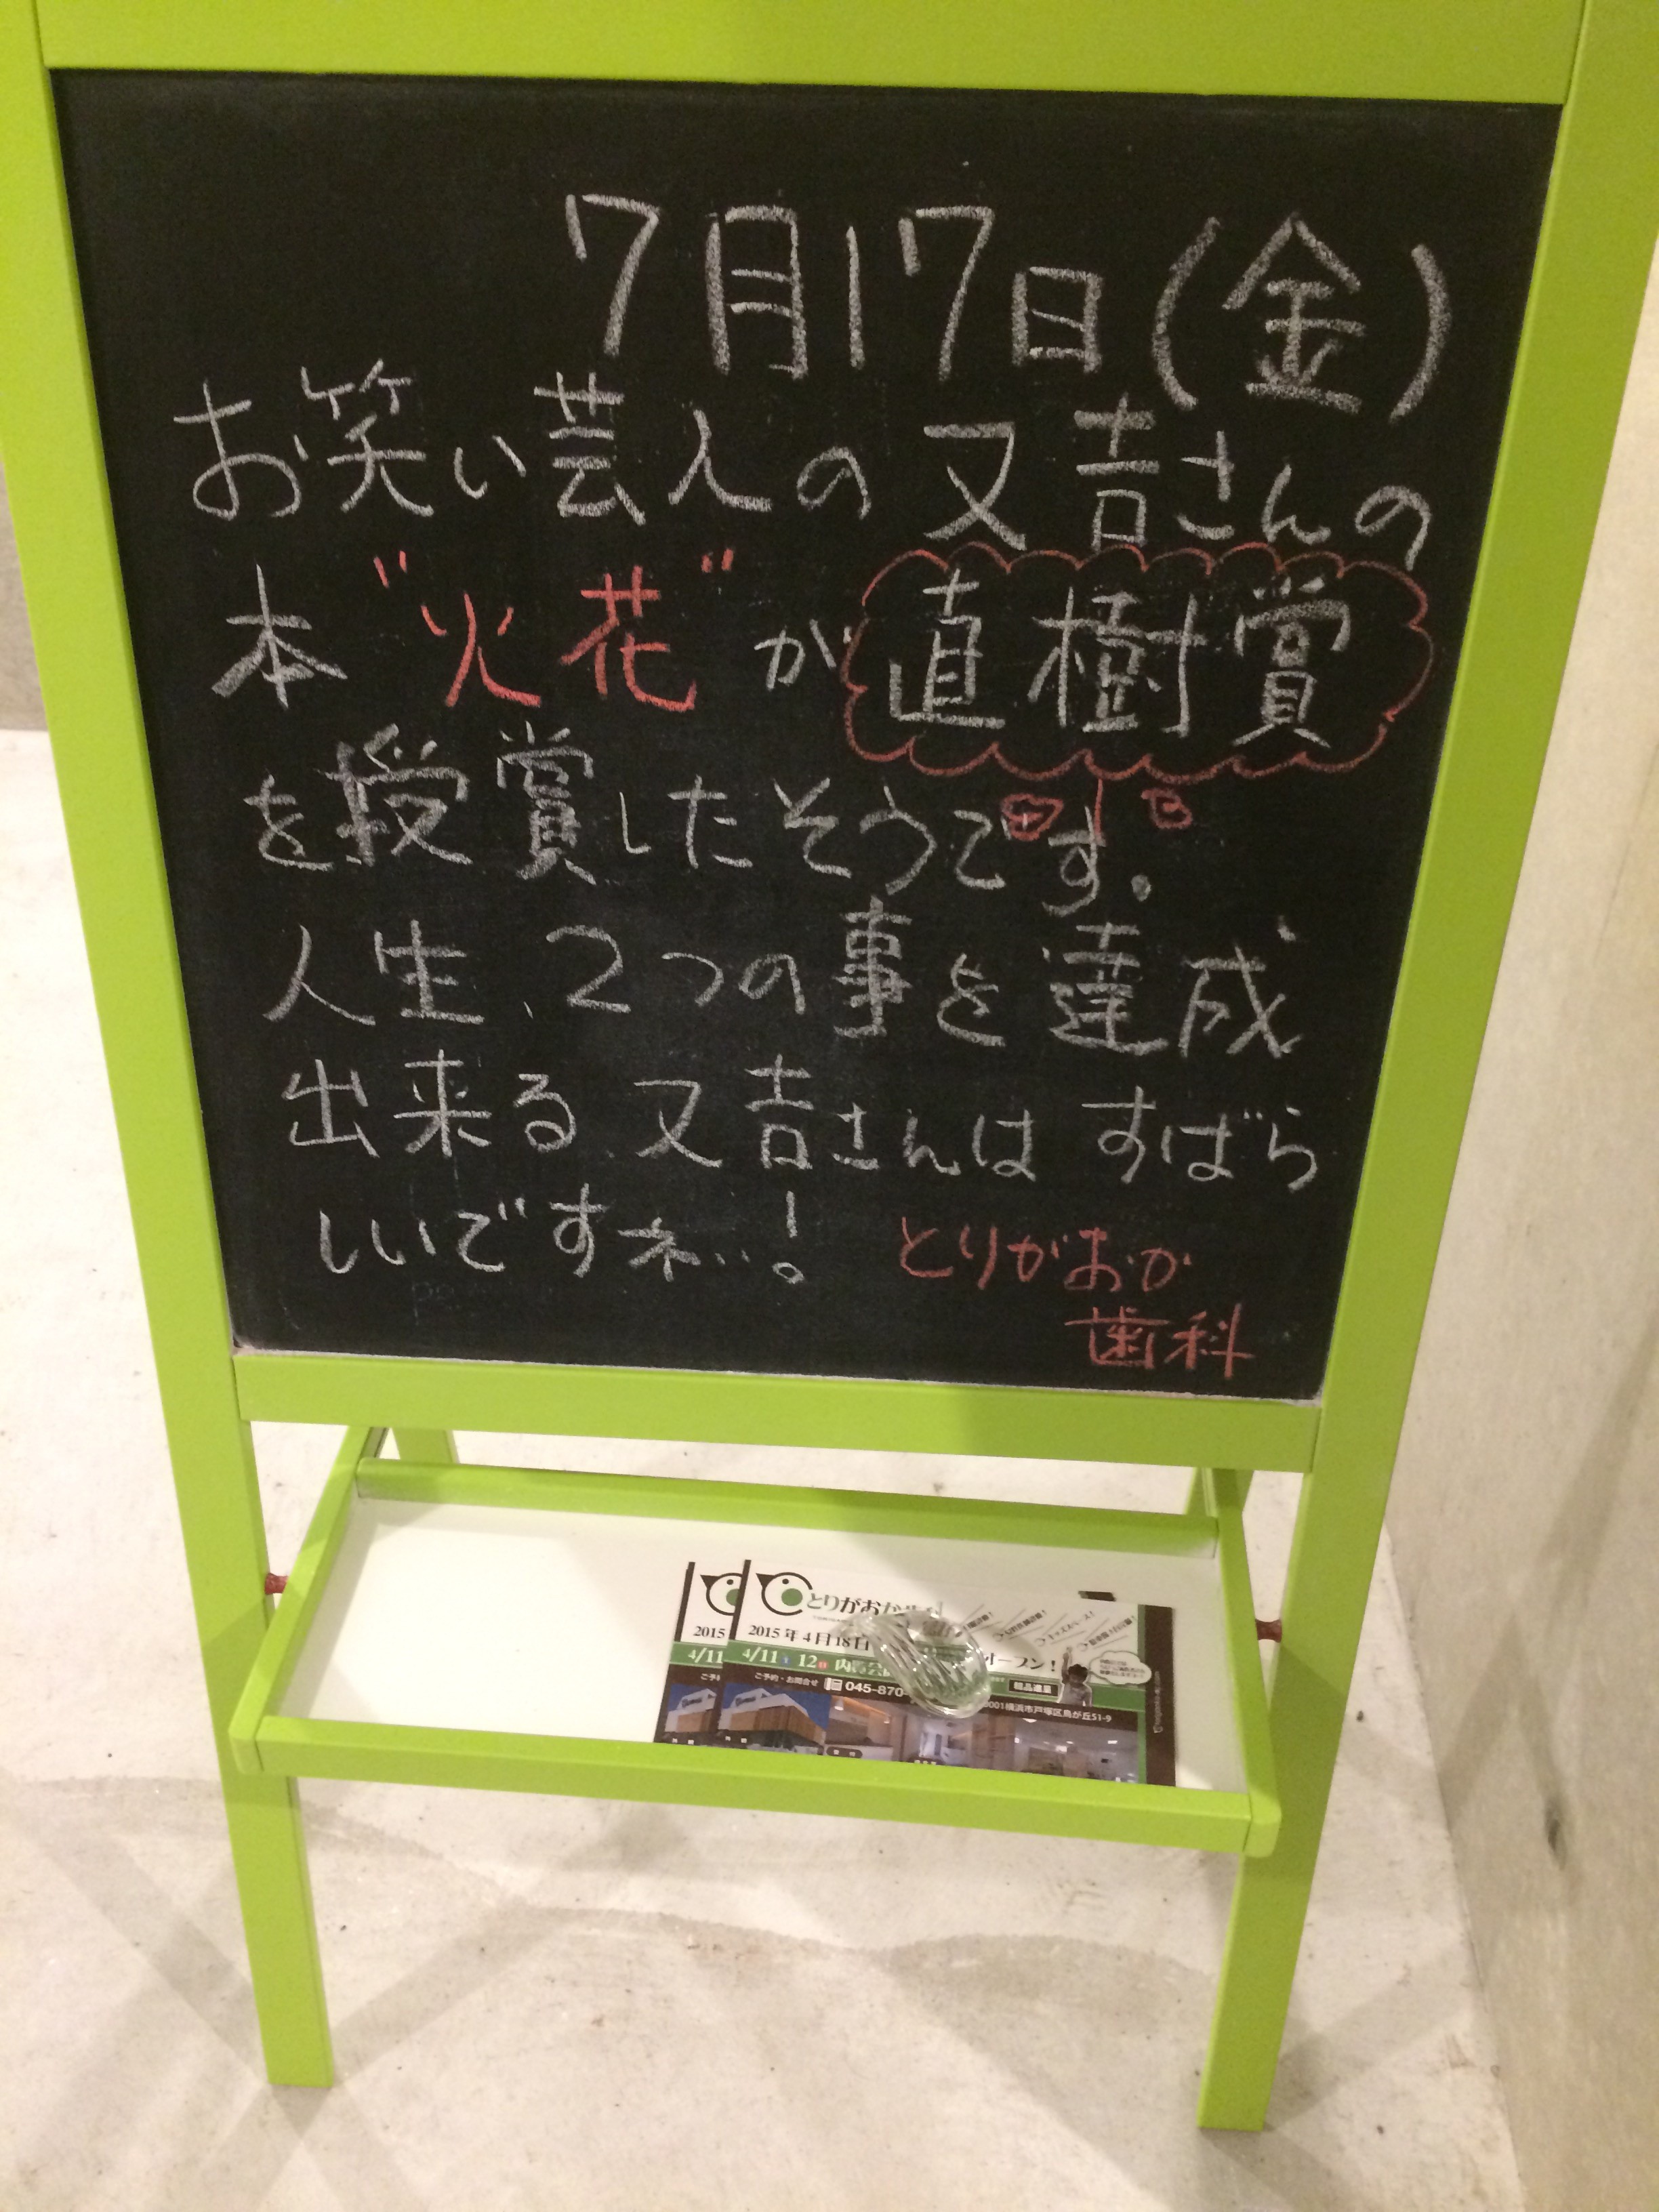 7月17日(金)
お笑い芸人の又吉さんの
本"火花"が直樹賞
を授賞したそうです.
人生、2つの事を達成
出来る又吉さんはすばら
しいですネ…!
とりがおか
歯科
とりがおか歯科
2015年4月18日
オープン!
4/11 12 内覧会
粗品進呈
ご予約・お問合せ
045-870-
0001横浜市戸塚区鳥が丘51-9
2015
4/11
ご予